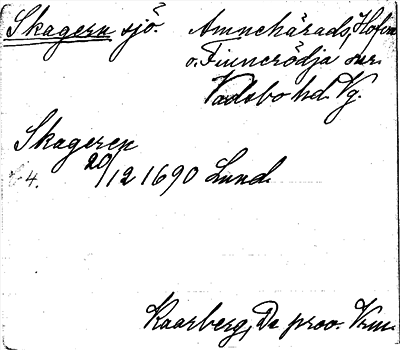 Skagern sjö. Amnehärads, Hofva
o. Finnerödja snr.
Vadsbo hd. Vg.
Skageren
4. 20/12 1690 Lund.
Kaarberg, De prov. Vrm.